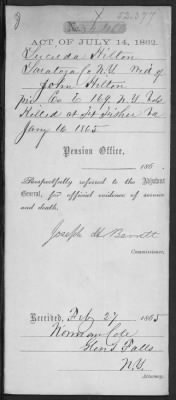 52,377
No.
ACT OF JULY 14, 1862.
Lucinda Hilton
Saratoga Co N.Y. Wid of
John Hilton
Co E 169 N.Y. Vols
Killed at Ft Fisher
Jany 16 1865
Pension Office,
186 .
Respectfully referred to the Adjutant
General, for official evidence of service
and death.
Joseph H Barrett
Commissioner.
Received, Feb 27 1865
Norman Cole
Glens Falls
N.Y.
Attorney.